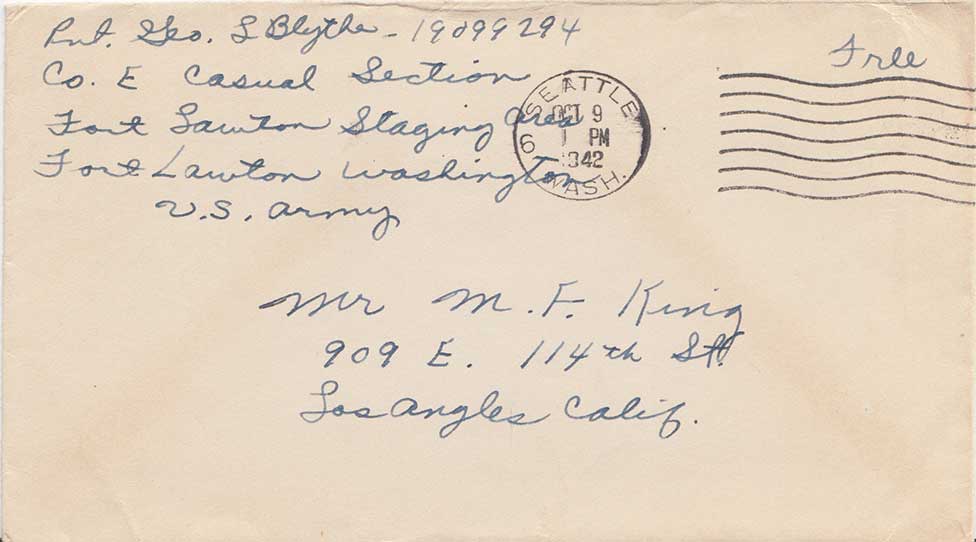 Pvt. Geo. L Blythe - 19099294
Co. E Casual Section
Fort Lawton Staging Area
Fort Lawton Washington
U.S. Army
Free
SEATTLE
OCT 9
1 PM
1942
WASH.
6
Mr M. F. King
909 E. 114th St.
Los Angles Calif.